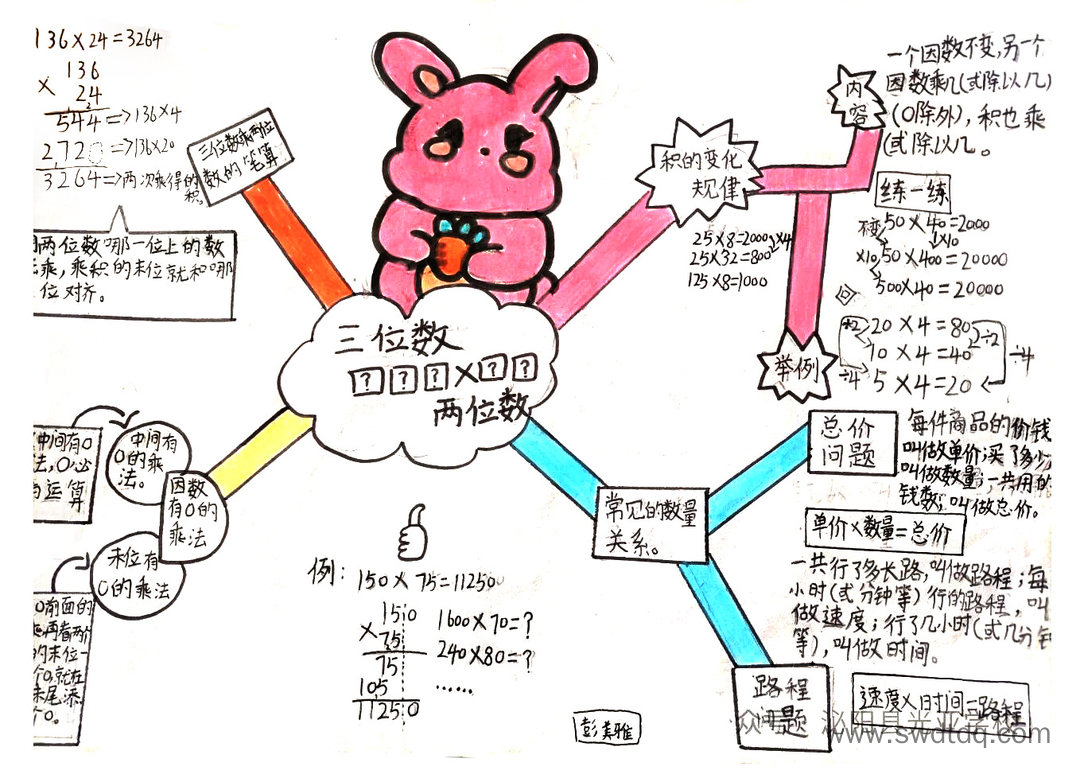 136×24=3264
136
× 24
544 ⇒136×4
2720 ⇒136×20
3264⇒两次乘得的
积。
三位数乘两位
数的笔算
两位数哪一位上的数
乘,乘积的末位就和哪
位对齐。
三位数
???×??
两位数
积的变化
规律
内
容
一个因数不变,另一个
因数乘几(或除以几)
(0除外),积也乘
(或除以几。
练一练
不变 50×40=2000
↓×10
×10 50×400=20000
500×40=20000
25×8=2000 ×4
25×32=800
125×8=1000
举例
÷2 20×4=80 ÷2
10×4=40 ÷4
÷4 5×4=20
中间有0
法,0必
运算
中间有
0的乘
法。
因数
有0的
乘法
末位有
0的乘法
0前面的
再看两个
的末位一
个0,就在
末尾添
个0。
例:
150×75=11250
150
× 75
75
105
11250
1600×70=?
240×80=?
……
常见的数量
关系。
总价
问题
每件商品的价钱
叫做单价;买了多少
叫做数量;一共用的
钱数;叫做总价。
单价×数量=总价
一共行了多长路,叫做路程;每
小时(或分钟等)行的路程,叫
做速度;行了几小时(或几分钟
等),叫做时间。
路程
问题
速度×时间=路程
彭美雅
www.swdtdq.com